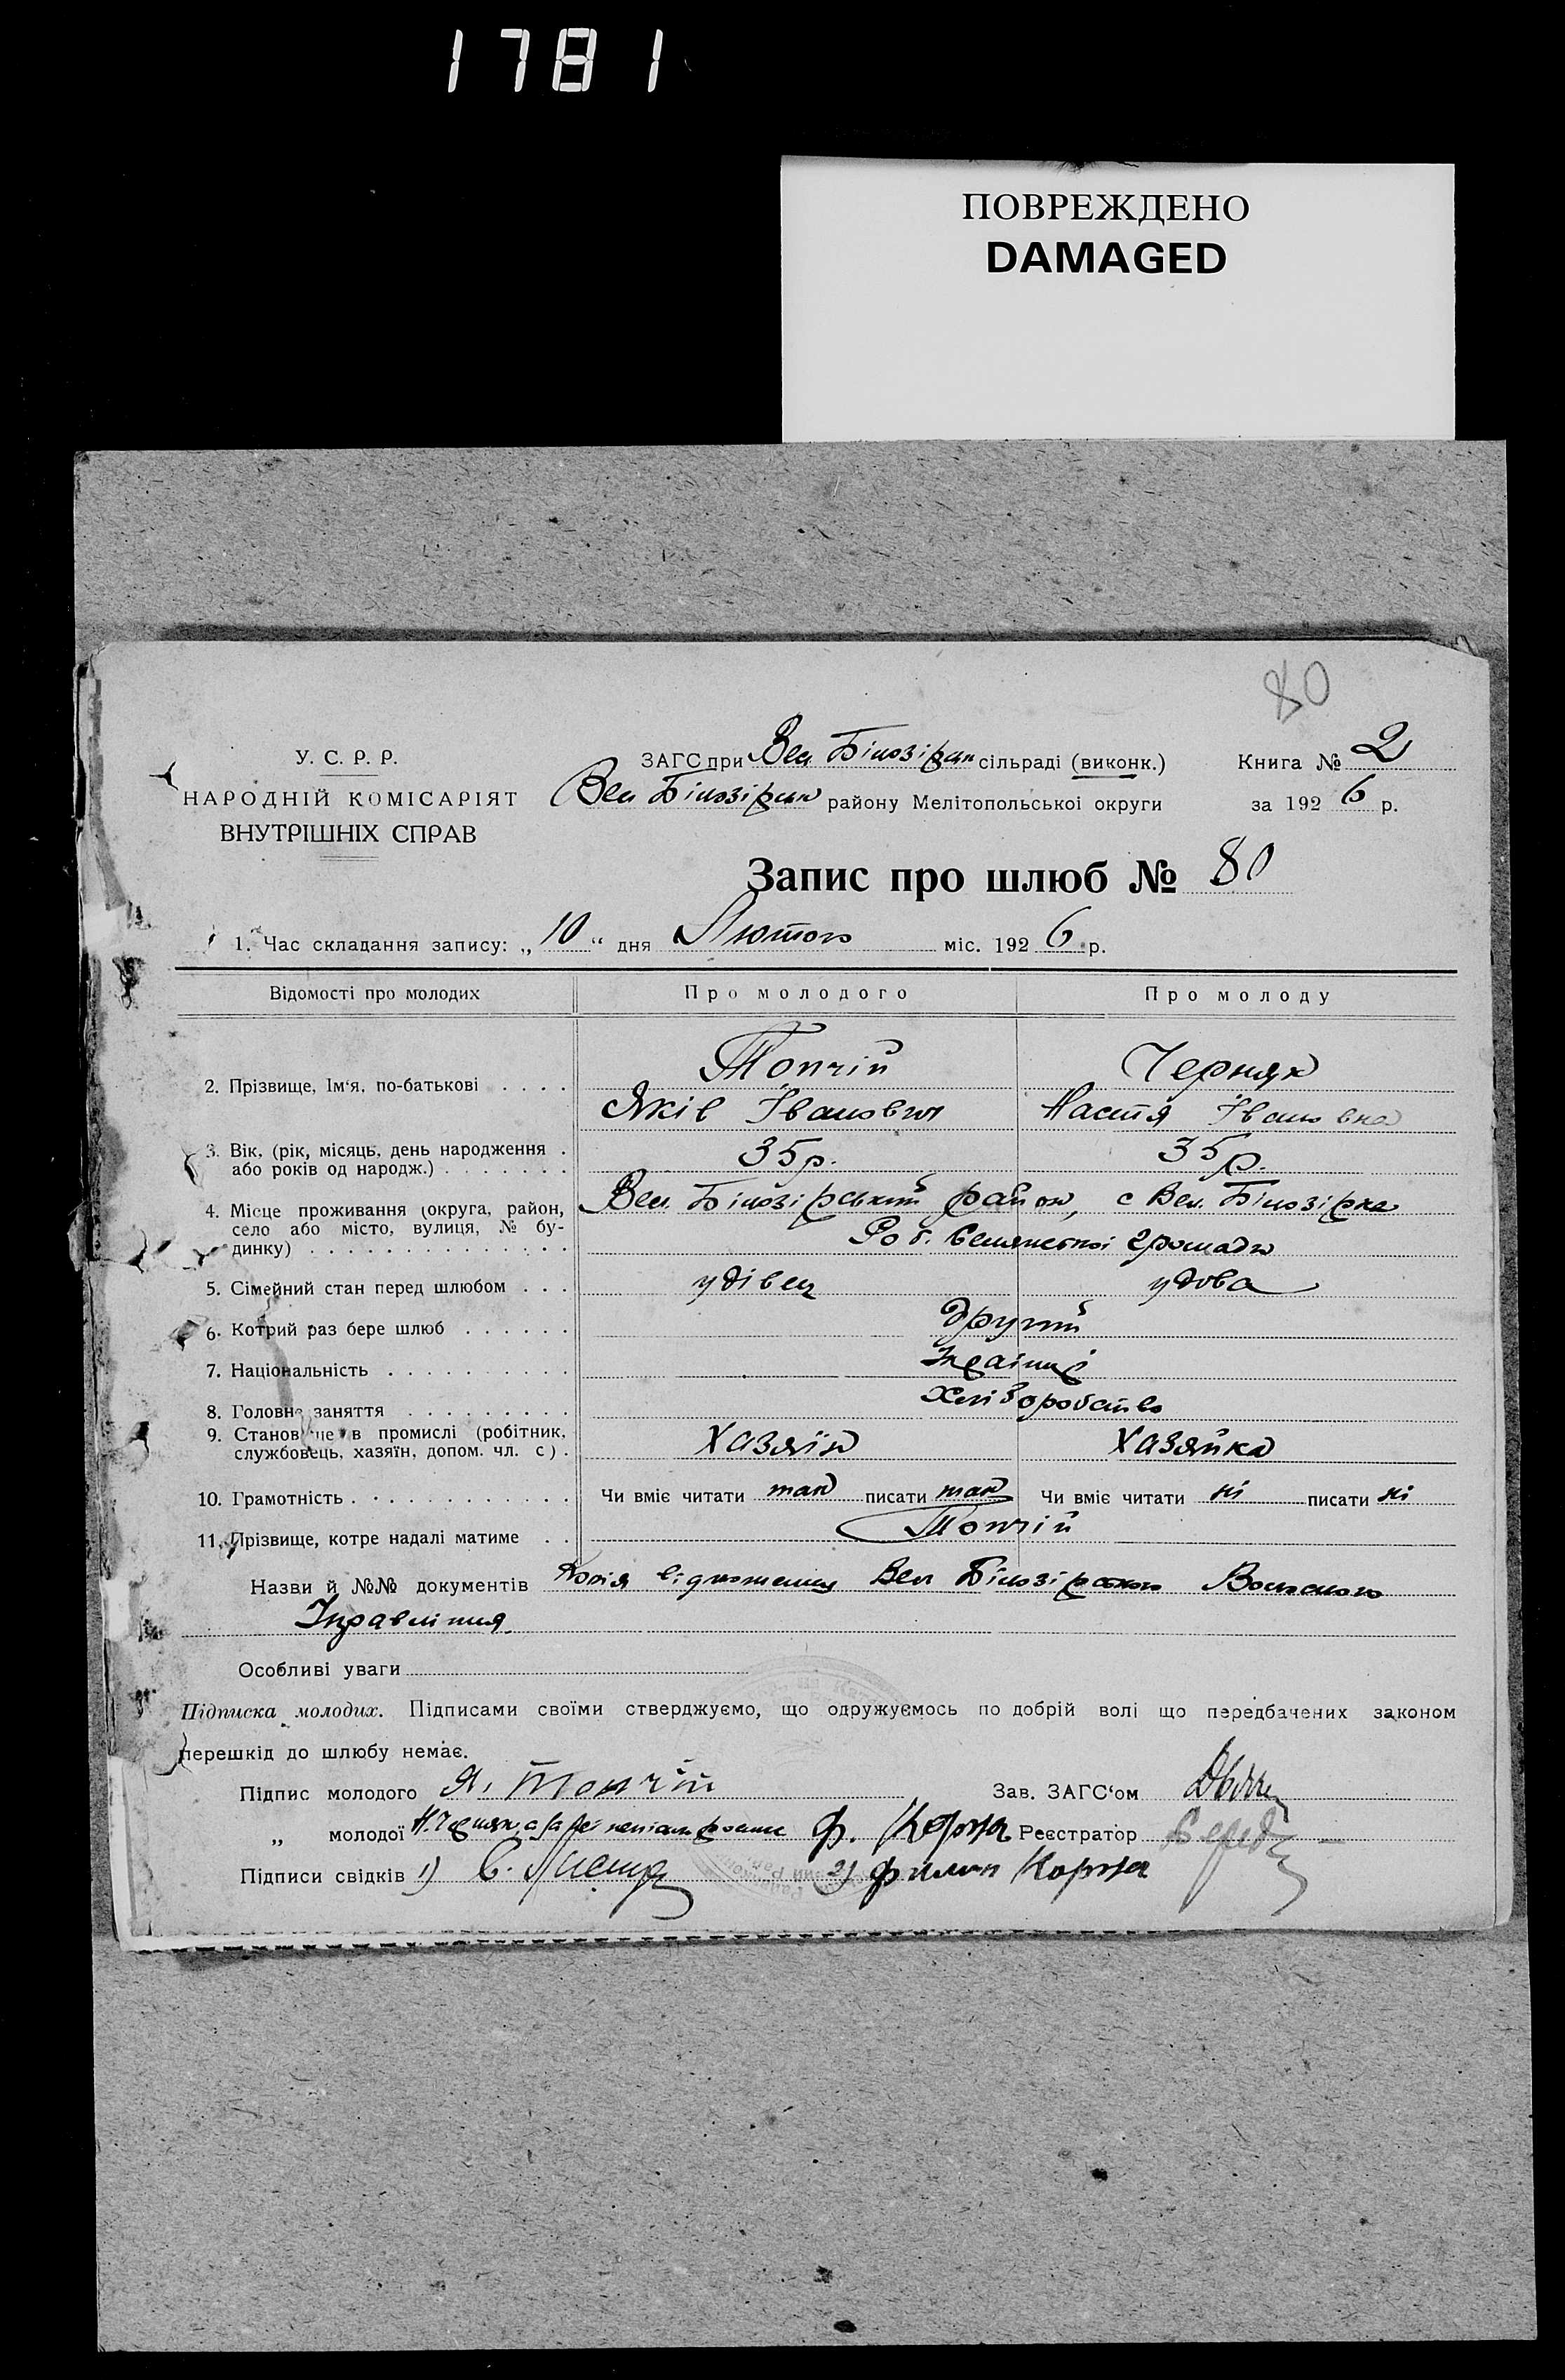 1781
ПОВРЕЖДЕНО
DAMAGED
80
У. С. Р. Р.
НАРОДНІЙ КОМІСАРІЯТ
ВНУТРІШНІХ СПРАВ
ЗАГС при Вел Білозірск сільраді (виконк.)
Вел Білозірськ району Мелітопольської округи
Книга № 2
за 1926 р.
Запис про шлюб № 80
1. Час складання запису: „10“ дня Лютого міс. 1926 р.
Відомості про молодих Про молодого Про молоду
2. Прізвище, Ім‘я, по-батькові . . . . Топчій Черняк
Яків Іванович Настя Івановна
3. Вік, (рік, місяць, день народження . 35р. 35р.
або років од народж.) . . . . . . .
4. Місце проживання (округа, район, Вел. Білозірський район, с Вел. Білозірка
село або місто, вулиця, № бу-
динку) . . . . . . . . . . . . . . громади
5. Сімейний стан перед шлюбом . . . удівец удова
6. Котрий раз бере шлюб . . . . . . Другий
7. Національність . . . . . . . . . . Украінці
8. Головне заняття . . . . . . . . . Хліборобство
9. Становище в промислі (робітник, Хазяїн Хазяйка
службовець, хазяїн, допом. чл. с) .
10. Грамотність . . . . . . . . . . . . Чи вміє читати так писати так Чи вміє читати ні писати ні
11. Прізвище, котре надалі матиме . . Топчій
Назви й №№ документів Копія відношения Вел Білозірського Волосного
Управління
Особливі уваги
Підписка молодих. Підписами своїми стверджуємо, що одружуємось по добрій волі що передбачених законом
перешкід до шлюбу немає.
Підпис молодого Я. Топчій Зав. ЗАГС‘ом
„ молодої Н. Черняк а за неї Ф. Коржа Реєстратор
Підписи свідків 1) 2) Филип Коржа